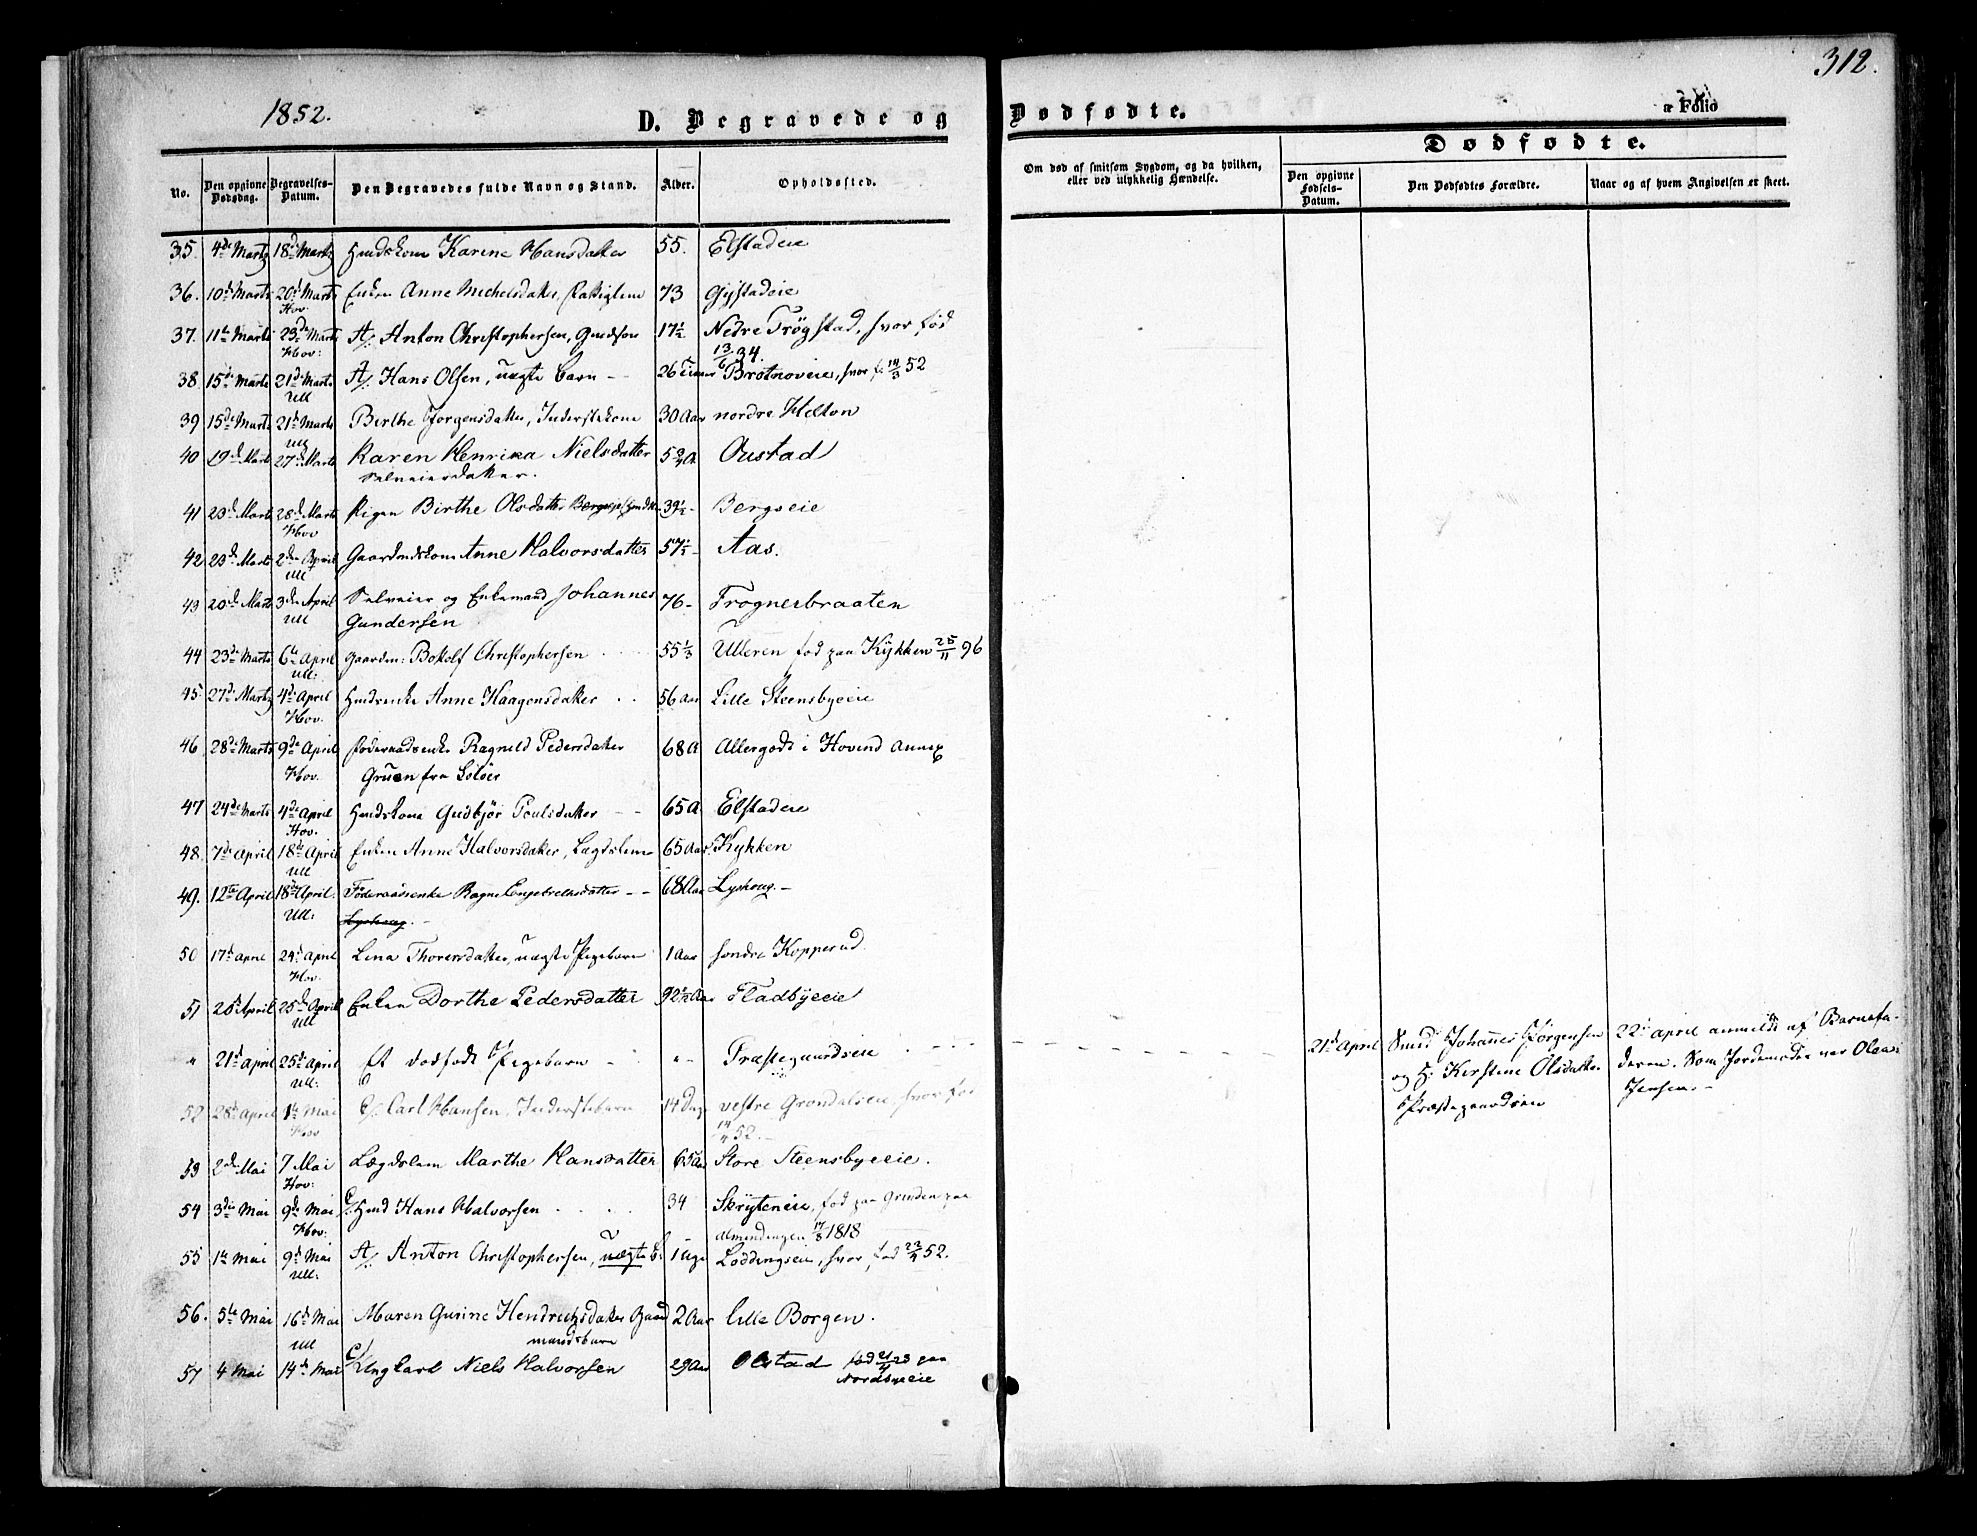 312.
1852.
D. Begravede og Dødfødte.
a Folio
No.
Den opgivne Dødsdag.
Begravelses-Datum.
Den Begravedes fulde Navn og Stand.
Alder.
Opholdssted.
Om død af smitsom Sygdom, og da hvilken, eller ved ulykkelig Hændelse.
Dødfødte.
Den opgivne Fødsels-Datum.
Den Dødfødtes Forældre.
Naar og af hvem Angivelsen er skeet.
35. 4de Marts 18de Marts Huuskone Karine Hansdatter 55. Elstadeie
36. 10de Marts 20de Marts Enken Anne Michelsdatter, 73 Gjistadeie
Hov.
37. 11te Marts 23de Marts A/ Anton Christophersen, 17½ Nedre Trøgstad, hvor fød
Hov: 13/6 34.
38. 15de Marts 21de Marts A/ Hans Olsen, uægte Barn - - 26 Timer Brotnoveie, hvor f. 14/3 52
Ull
39 15de Marts 21de Marts Birthe Jørgensdatter, Inderstekone 30 Aar nordre Hæton
Ull
40 19de Marts 27de Marts Karen Henrika Nielsdatter 5¾ A Oustad
Selveierdatter.
41 20de Marts 28de Marts Pigen Birthe Olsdatter 39½ - Bergseie
Hov
42 23de Marts 2den April Gaardmdskone Anne Halvorsdatter 57½ - Aas.
Ull
43 20de Marts 3die April Selveier og Enkemand Johannes 76 - Trognerbraaten
Ull Gundersen
44 23de Marts 6te April Gaardm: Botolf Christophersen 55⅓ Ulleren fød paa Kykken 25/11 96
Ull:
45. 27de Marts 4de April Anne Haagensdatter 56 Aar Lille Steensbyeeie
Hov.
46 28de Marts 9de April Føderaadsenke Ragnild Pedersdatter 68 A Allergodt i Hovind Annex
Hov. Gruen fra Soløer
47 24de Marts 4de April Huuskone Gudbjør Poulsdatter - - 65 A Elstadeie
Hov.
48. 7de April 18de April Enken Anne Halvorsdatter, Lægdslem 65 Aar Kykken
Ull
49. 12te April 18de April. Føderaadsenke Ragne Engebretsdatter - - 68 Aar Lyshoug. -
Ull: Lyshoug. -
50 17de April 24de April Lina Thorersdatter, uægte Pigebarn 1 Aar søndre Kopperud
Hov.
51 20de April 25de April Enken Dorthe Pedersdatter 92½ Aar Fladbyeeie
Ull
" 21de April 25de April Et dødfødt Pigebarn " - Præstegaardseie
Ull:
21de April
Smed Johannes Jørgensen
og H: Kirstine Olsdatter
Præstegaardseie
22de april anmeldt af Barnefa-
deren. Som Jordemoder var Olea
Jensen. -
52 28de April 1te Mai C/ Carl Hansen, Inderstebarn 14 Dage vestre Grøndalseie, hvor fød
Hov 14/4 52. -
53 2den Mai 7 Mai Lægdslem Marthe Hansdatter 65 Aar Store Steensbyeeie.
Hov:
54 3die Mai 9de Mai C/ Huusmd Hans Halvorsen 34 Skryteneie, fød paa Grinden paa
Hov: Almindingen 17/8 1818
55 1te Mai 9de Mai A/ Anton Christophersen, uægte B: 1 Uge Løddingseie, hvor fød 23/4 52.
Ull:
56. 5te Mai 16de Mai Maren Gurine Hendrichsdatter Gaard 2 Aar Lille Borgen.
Ull mandsbarn
57 4 Mai 14de Mai C/ Ungkarl Niels Halvorsen 29 Aar Olstad fød 21/4 23 paa
Nordbyeeie